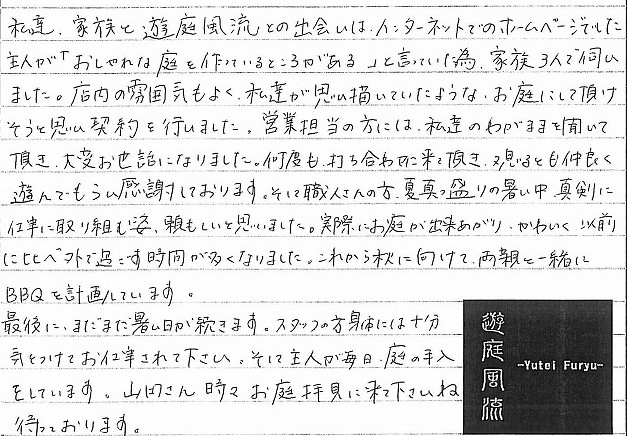 私達、家族と遊庭風流との出会いは、インターネットでのホームページでした
主人が「おしゃれな庭を作っているところがある」と言っていた為、家族3人で伺い
ました。店内の雰囲気もよく、私達が思い描いていたような、お庭にして頂け
そうと思い契約を行いました。営業担当の方には、私達のわがままを聞いて
頂き、大変お世話になりました。何度も、打ち合わせに来て頂き、子供とも仲良く
遊んでもらい感謝しております。そして職人さんの方、夏真っ盛りの暑い中、真剣に
仕事に取り組む姿、頼もしいと思いました。実際にお庭が出来あがり、かわいく、以前
に比べ外で過ごす時間が多くなりました。これから秋に向けて、両親と一緒に
BBQを計画しています。
最後に、まだまだ暑い日が続きます。スタッフの方身体には十分
気をつけてお仕事されて下さい。そして主人が毎日、庭の手入
をしています。山口さん 時々 お庭拝見に来て下さいね
待っております。
遊庭風流
-Yutei Furyu-